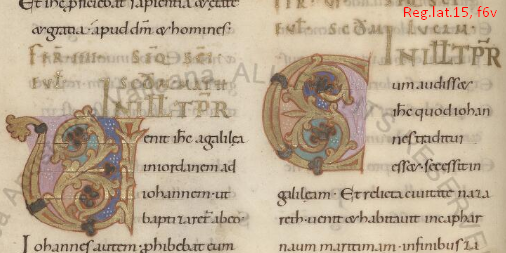 Et ihc pficiebat sapientia & etate
& gratia · apud dm & homines·
IN ILL TPR
Uenit ihc a galilea
in iordanem ad
iohannem · ut
baptizaret ab eo·
Iohannes autem · phibebat eum
Reg.lat.15, f6v
IN ILL TPR
Cum audisset
ihc quod iohan
nes traditur
esset · secessit in
galileam · Et relicta ciuitate naza
reth · uenit & habitauit in caphar
naum maritimam · in finibus za